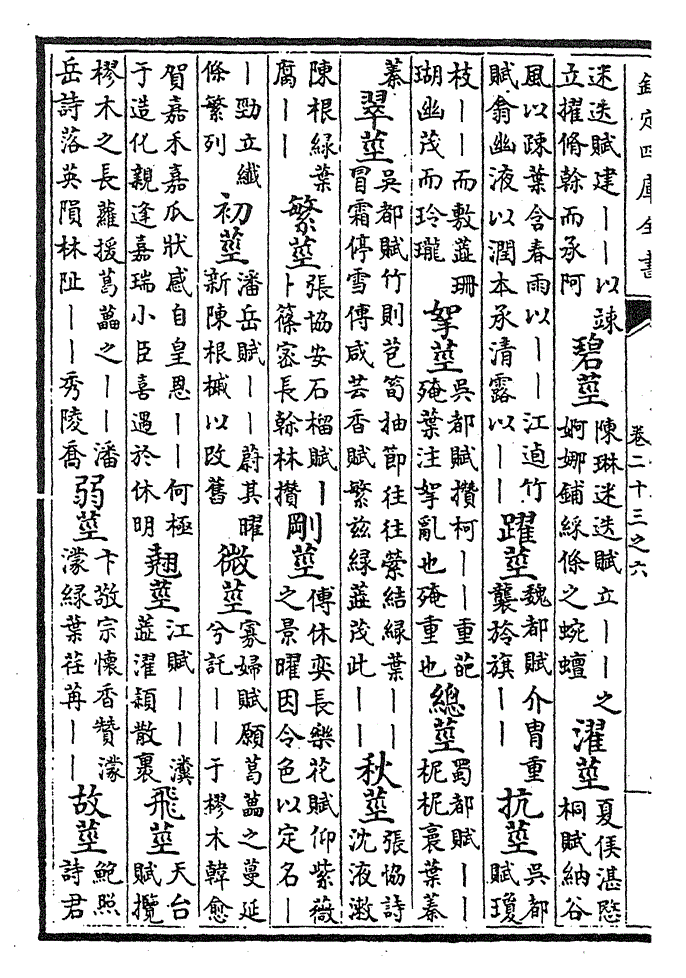 欽定四庫全書 卷二十三之六
迷迭賦建丨丨以竦立擢脩榦而承阿 碧莖 陳琳迷迭賦立丨丨之婀娜鋪綵條之蜿蟺 濯莖 夏侯湛愍桐賦納谷
風以疎葉含春雨以丨丨江逌竹賦翕幽液以潤本承清露以丨丨 躍莖 魏都賦介冑重襲旍旗丨丨 抗莖 吳都賦瓊
枝丨丨而敷蘂珊瑚幽茂而玲瓏 挐莖 吳都賦攢柯丨丨重葩殗葉注挐亂也殗重也 總莖 蜀都賦丨丨柅柅裛葉蓁
蓁 翠莖 吳都賦竹則苞筍抽節往往縈結綠葉丨丨冒霜停雪傅咸芸香賦繁兹綠蘂茂此丨丨 秋莖 張協詩沈液漱
陳根綠葉腐丨丨 繁莖 張協安石榴賦丨丨篠宻長榦林攢 剛莖 傅休奕長樂花賦仰紫薇之景曜因令色以定名丨
丨勁立纎條繁列 初莖 潘岳賦丨丨蔚其曜新陳根槭以改舊 微莖 寡婦賦願葛藟之蔓延兮託丨丨于樛木韓愈
賀嘉禾嘉瓜狀感自皇恩丨丨何極于造化親逢嘉瑞小臣喜遇於休明 翹莖 江賦丨丨瀵蘂濯穎散裹 飛莖 天台賦攬
樛木之長蘿援葛藟之丨丨潘岳詩落英隕林趾丨丨秀陵喬 弱莖 卞敬宗懷香贊濛濛綠葉荏苒丨丨 故莖 鮑照詩君